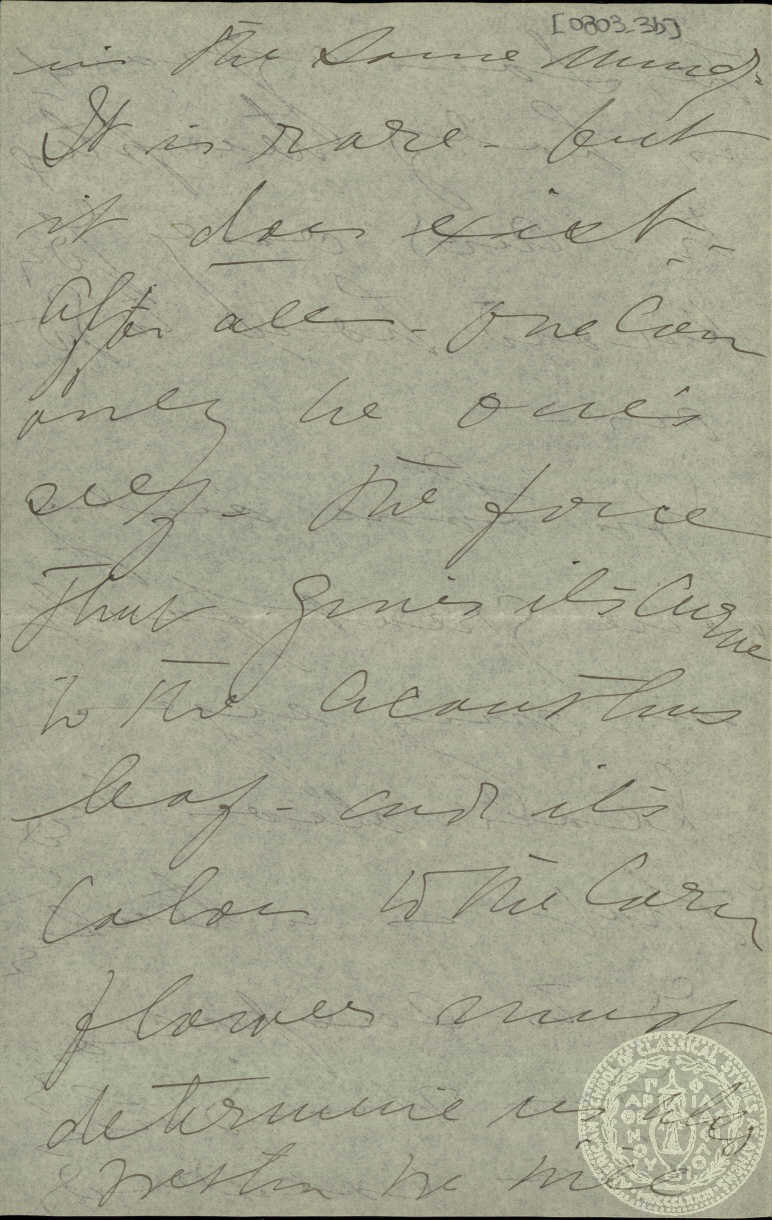 [0803_3b]
in the same mind.
It is rare - but
it does exist -
After all - one can
only be one's
self - The force
that gives its curve
to the acanthus
leaf - and its
colour to the corn
flower must
determine us
be
SCHOOL OF CLASSICAL STUDIES